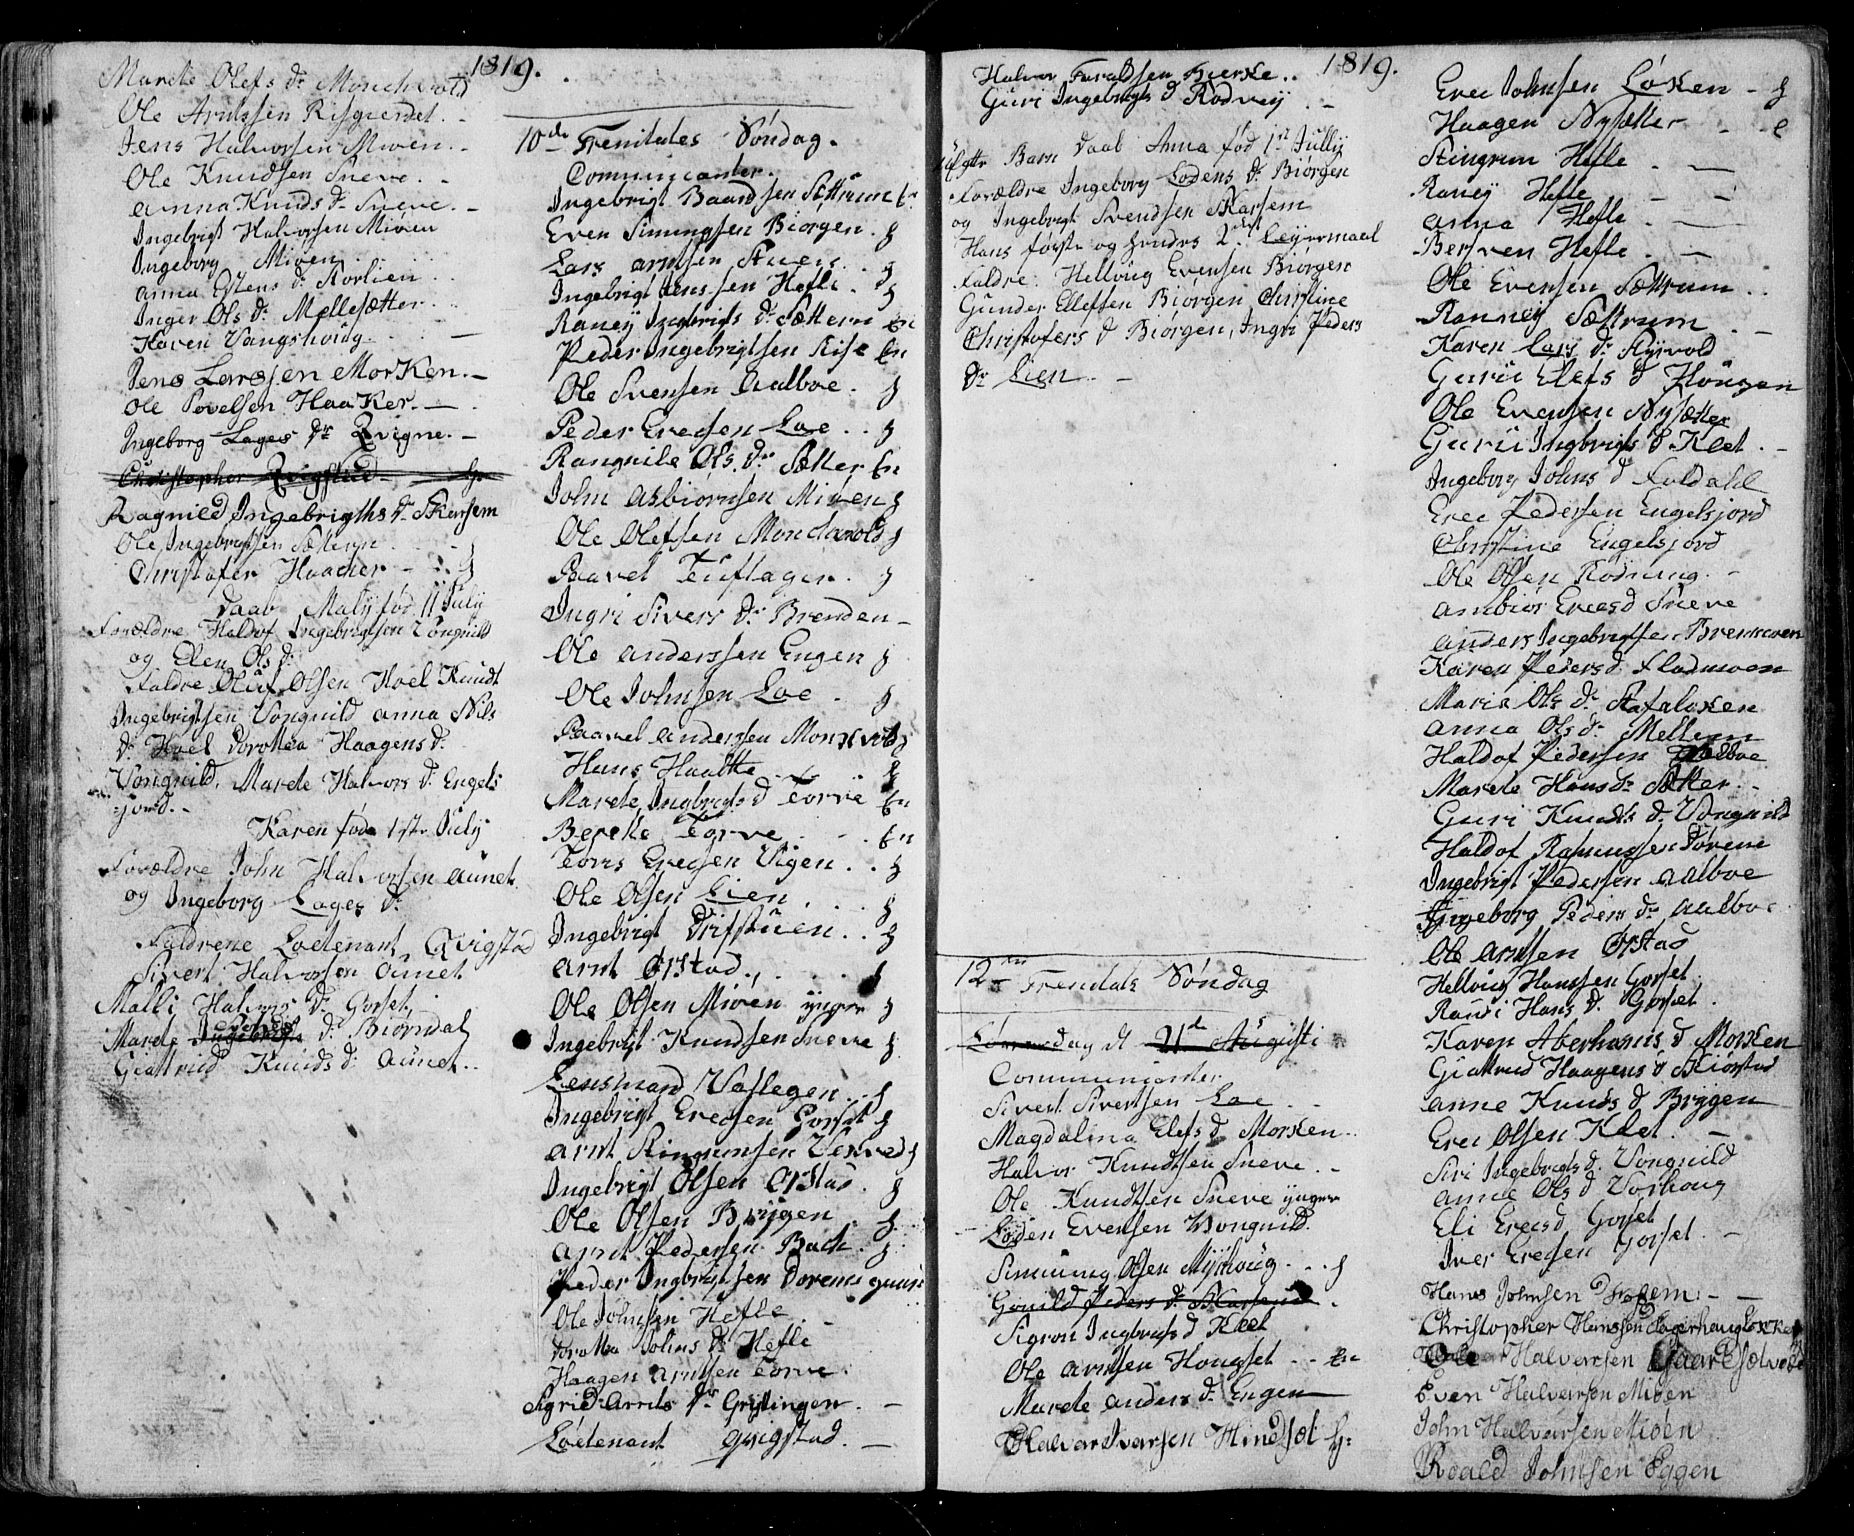 1819.
Marete Olefs Dr Monchvold
Ole Arntssen Risgrendet. -
Jens Halvorsen Miøen. -
Ole Knudsen Sneve. -
Anna Knuds Dr Sneve. -
Ingebrigt Halvorsen Miøen
Ingeborg Miøen
Anna Estens Dr Norlien
Inger Ols Dr Mellesætter
Haven Vangshoug. -
Jens Larssen Morken. -
Ole Povelsen Haaker. -
Ingeborg Lages Dr Qvigne. -
Christopher Qvigstad
Ragnild Ingebrigths Dr Skarsem
Ole Ingebrigtsen Sættern
Christofer Haacker
Daab Malÿ fød 11 July
Forældre Haldof Ingebrigtsen Vongnild
og Elen Ols Dr
Faldre Oluf Olsen Hoel Knudt
Ingebrigtsen Vongnild Anna Nils
Dr Hoel Dorothea Haagens Dr
Vongnild, Marete Halvors Dr Engels
jord. -
Karenføde 1ste July
Forældre John Halvorsen Aunet
og Ingeborg Lages Dr
Faldrene Loetenant Qvigstad
Sivert Halvorsen Aunet
Malli Halvors Dr Gorset,
Marete Ingebrigts Dr Biørndal
Giattrud Knuds Dr Aunet..
10de Trenitates Søndag.
Communicanter.
Ingebrigt Baardsen Sættrum En
Even Simingsen Biørgen. g
Lars Arntsen Stuen. g
Ingebrigt Jenssen Hefle. g
Raneÿ Ingbrigts Dr Sættern En
Peder Ingebrigtsen Rise En
Ole Svensen Aalboe. g
Peder Erecsen Loe. . g
Rangnile Ols Dr Sætter En
John Asbiørnsen Miøen g
Ole Olefsen Mondsvold g
Paavel Teuflager. g
Ingri Sivers Dr Brenden -
Ole Anderssen Engen g
Ole Johnsen Loe. g
Paavel Andersen Monsvold g
Hans Haatte g
Marete Ingbrigts D Torve En
Bereke Torve. En
Tores Erecsen Vigen. . g
Ole Olsen Lien. g
Ingebrigt Drifstuen. . g
Arnt Ørstad. g
Ole Olsen Miøen ÿngre g
Ingebrigt Knudsen Sneve g
Lensmand Vaslegen. . g
Ingebrigt Erecsen Gorset g
Arnt Ringrimsen Vekved g
Ingebrigt Olsen Orstad. g
Ole Olsen Brÿgen. g
Arnt Pedersen Bach. g
Peder Ingbrigtsen Dorems
Ole Johnsen Hefle
Dorothea Johns Dr Hefle
Haagen Arntsen Torve.
Sigrid Arnts Dr Grÿtingen. -
Løetenant Qvigstad. -
1819.
Halvor Taraldsen Bierke. .
Guri Ingebrigts D Rodveÿ. -
Barn Daab Anna fød 1st Jullÿ
Forældre Ingeborg Lodens Dr Biørgen
og Ingebrigt Svendsen Skarsem
Hans første og hendes 2det Leÿermaal
Faldre: Hellvig Evensen Biørgen
Gunder Ellefsen Biørgen Christine
Christofers D Biørgen, Ingri Peders
Dr Lien. -
12te Trenitats Søndag
Lørverdag d 21de Augusti
Communicanter
Sivert Sivertsen Loe. -
Magdalina Elefs D Morken. .
Halvor Knudtsen Sneve. -
Ole Knudtsen Sneve ÿngre
Loden Evensen Vongnild.
Simming Olsen Mÿhhoug. . . g
Gonild Peders Dr Skarsem.
Sigron Ingbrigts D Kleet
Ole Arntsen Hougset. - . En
Marete Anders Dr Engen
Halvor Ivarsen Hindset g.
Erec Johnsen Løken - g
Haagen Nÿsætter - - e
Stingrum Hefle. -
Raneÿ Hefle
Anna Hefle.
Berfven Hefle. -
Ole Evensen Sættrum. .
Ranneÿ Sættrum. -
Karen Lars Dr Rÿvold
Guru Elefs D Hougen
Ole Evensen Nÿsætter
Guru Ingbrigts D Kleet. -
Ingeborg Johns D Foldahl
Erec Pedersen Engelsjord
Christine Engelsjord
Ole Olsen Rodning. -
Ambiør Erecs D Sneve
Anders Ingebrigtsen Bremoen
Karen Peders D Flodmoen
Maria Ols Dr Rataløken
Anna Ols Dr Mellem
Haldof Pedersen Aalboe
Marete Hans Dr Sætter. -
Guri Knudts Dr Vongnild
Haldof Rasmussen Døreme
Ingebrigt Pedersen Aalboe
Ingeborg Peders Dr Aalboe
Ole Arntsen Ørstad
Hellvig Hanssen Gorset.
Randi Hans Dr Gorset.
Karen Aberhams D Morken
Giattrud Haagens D Skiørstad
Anne Knuds D Brÿgen
Erec Olsen Kleet. -
Siri Ingebrigts Dr Vongnild
Anne Ols D Vorhoug
Eli Erecs D Gorset
Iver Erecsen Gorset. -
Hans Johnsen
Christopher Hanssen
Halvarsen
Even Halvarsen Miøen
John Halvarsen Miøen
Roald Johnsen Eggen